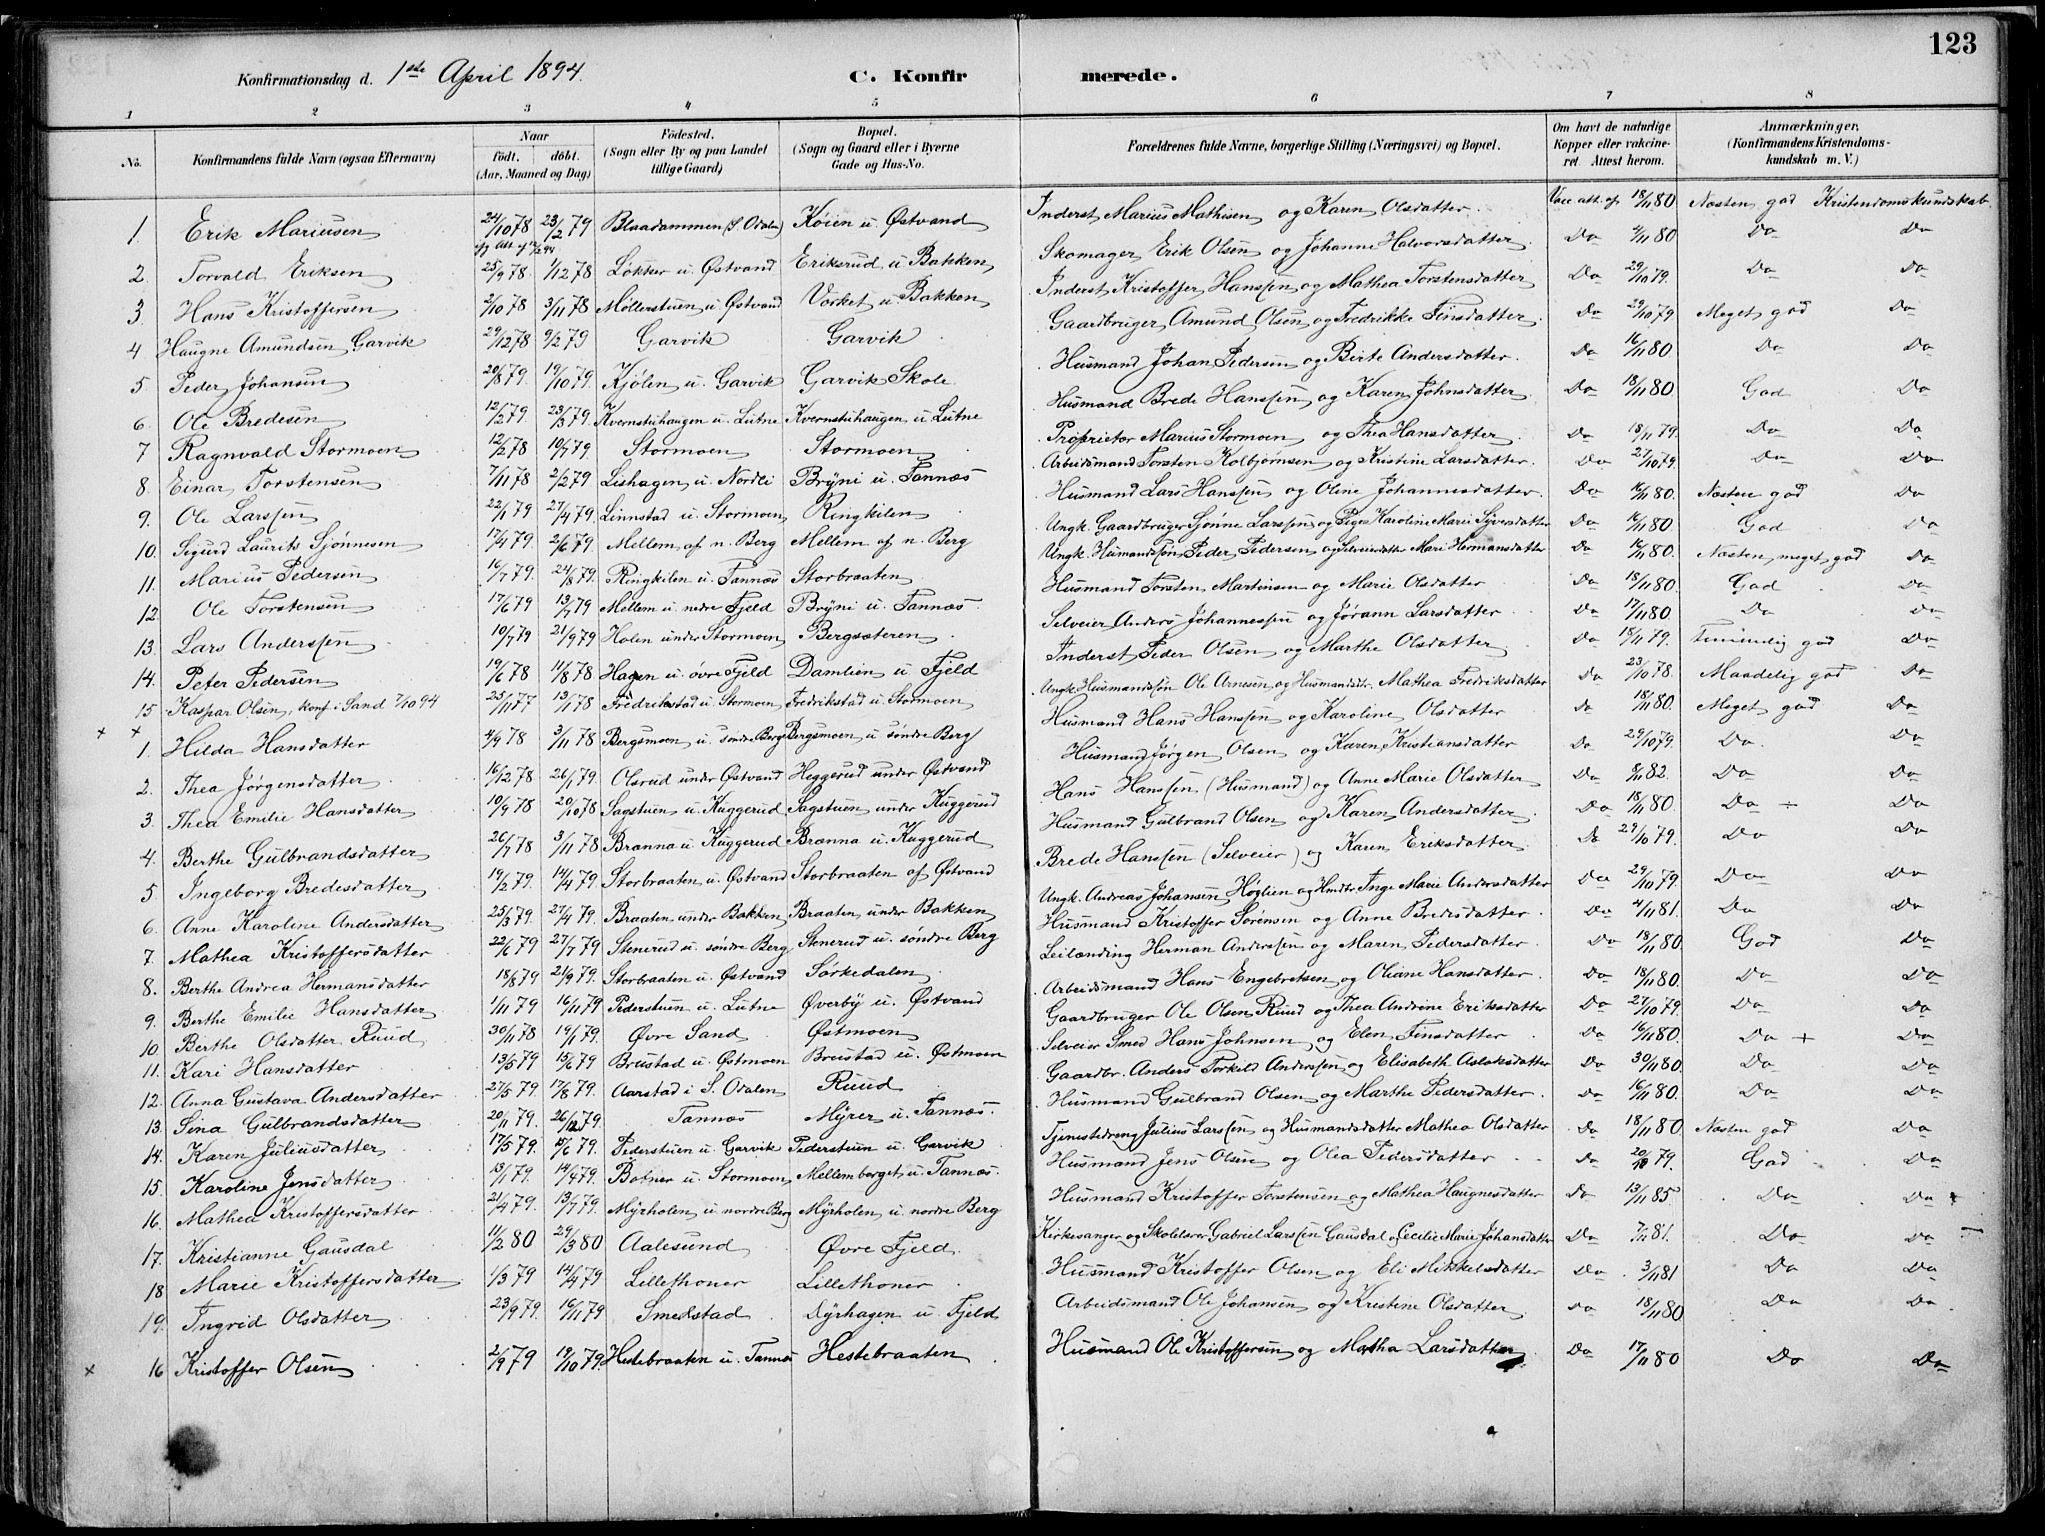 123
Konfirmationsdag d. 1ste April 1894. C. Konfirmerede.
1 2 3 4 5 6 7 8
No. Konfirmandens fulde Navn (ogsaa Efternavn) Naar födt. döbt. (Aar, Maaned og Dag) Födested. (Sogn eller By og paa Landet tillige Gaard) Bopæl. (Sogn og Gaard eller i Byerne Gade og Hus-No. Forældrenes fulde Navne, borgerlige Stilling (Næringsvei) og Bopæl. Om havt de naturlige Kopper eller vakcineret. Attest herom. Anmærkninger. (Konfirmandens Kristendomskundskab m. V.)
1. Erik Mariusen 24/10 78 23/2 79 Blaadammen (S. Odalen) Köien u. Østvand Inderst Marius Mathisen og Karen Olsdatter. Vacc. att. af 18/11 80 Næsten god Kristendomskundskab.
2. Torvald Eriksen 25/9 78. 1/12 78 Løkker u. Østvand Eriksrud u. Bakken Skomager Erik Olsen og Johanne Halvorsdatter. Do 4/11 80 Do Do
3. Hans Kristoffersen 2/10 78 3/11 78 Møllerstuen u. Østvand Vorket u. Bakken Inderst Kristoffer Hanssen og Mathea Torstensdatter Do 29/10 79. Do Do
4 Haugne Amundsen Garvik 29/12 78 9/2 79 Garvik Garvik Gaardbruger Amund Olsen og Fredrikke Finsdatter. Do 29/10 79 Meget god Do
5. Peder Johansen 20/8 79. 19/10 79. Kjölen u. Garvik Garvik Skole Husmand Johan Pedersen og Birte Andersdatter. Do 16/11 80 Do Do
6. Ole Bredesen 12/2 79. 23/3 79. Kvernstuhaugen u. Lutne Kvernstuhaugen u. Lutne Husmand Brede Hanssen og Karen Johnsdatter Do 18/11 80 God Do
7 Ragnvald Stormoen 12/2 78 10/7 79 Stormoen Stormoen Proprietær Marius Stormoen og Thea Hansdatter Do 18/11 79. Do Do
8. Einar Torstensen 7/11 78 2/2 79 Lishagen u. Nordli Bryni u. Tannæs Arbeidsmand Torsten Kolbjørnsen og Kristine Larsdatter. Do 27/10 79. Do Do
9. Ole Larssen 22/1 79 27/4 79. Linnstad u. Stormoen Ringkilen Husmand Lars Hanssen og Oline Johannesdatter. Do 16/11 80. Næsten god Do
10. Sigurd Laurits Sjønnesen 17/4 79. 2/6 79. Mellem af n. Berg Mellem af n. Berg Ungk. Gaardbruger Sjønne Larssen og Pige Karoline Marie Syversdatter Do 16/11 80 God Do
11. Marius Pedersen 16/7 79. 24/8 79. Ringkilen u. Tannæs Storbraaten Ungk. Husmandssøn Peder Pedersen og Selveierdatter Mari Hermansdatter Do 16/11 80. Næsten meget god Do
12. Ole Torstensen 17/6 79 13/7 79 Mellem u. nedre Fjeld Bryni u. Tannæs. Husmand Torsten Martinsen og Marie Olsdatter Do 18/11 80. God Do
13. Lars Anderssen 10/7 79 21/9 79 Holen under Stormoen Bergsæteren Selveier Anders Johannessen og Jørann Larsdatter Do 17/11 80. Do Do
14. Peter Pedersen 19/6 78 11/8 78 Hagen u. övre Fjeld Damlien u. Fjeld Inderst Peder Olsen og Marthe Olsdatter Do 18/11 79. Temmelig god Do
15 Kaspar Olsen, konf. i Sand 7/10 94 25/11 77 13/1 78 Fredrikstad u. Stormoen Fredrikstad u. Stormoen Ungk. Husmandssøn Ole Arnesen og Husmandsdtr. Mathea Fredriksdatter Do 23/10 78. Maadelig god Do
1. Hilda Hansdatter 4/9 78 3/11 78 Bergsmoen u. søndre Berg Bergsmoen u. søndre Berg Husmand Hans Hanssen og Karoline Olsdatter Do 18/11 80. Meget god Do
2. Thea Jørgensdatter 16/12 78 26/1 79. Olsrud under Østvand Heggerud under Østvand Husmand Jørgen Olsen og Karen Kristiansdatter Do 29/10 79. Do. Do
3. Thea Emilie Hansdatter 10/9 78 20/10 78 Sagstuen u. Kuggerud Sagstuen under Kuggerud Hans Hanssen (Husmand) og Anne Marie Olsdatter Do 8/11 82. Do Do
4. Berthe Gulbrandsdatter 26/7 78 3/11 78 Brænna u. Kuggerud Brænna u. Kuggerud Husmand Gulbrand Olsen og Karen Andersdatter Do 18/11 80. Do Do
5. Ingeborg Bredesdatter 19/2 79. 14/4 79. Storbraaten u. Østvand Storbraaten af Østvand Brede Hanssen (Selveier) og Karen Eriksdatter Do 29/10 79. Do Do
6. Anne Karoline Andersdatter 25/3 79 27/4 79. Braaten under Bakken Braaten under Bakken Ungk. Andreas Johansen Höglien og Inge Marie Andersdatter Do 29/10 79. Do Do
7. Mathea Kristoffersdatter 22/6 79 27/7 79 Stenerud u. søndre Berg Stenerud u. söndre Berg Husmand Kristoffer Sørensen og Anne Bredesdatter Do 4/11 81. Do Do
8. Berthe Andrea Hermansdatter 18/8 79 21/9 79. Storbraaten u. Østvand Sørkedalen Leilænding Herman Anderssen og Maren Pedersdatter Do 18/11 80. God Do
9. Berthe Emilie Hansdatter 1/11 79 16/11 79 Pederstuen u. Lutne Øverby u. Østvand Arbeidsmand Hans Engebretsen og Oliane Hansdatter. Do 18/11 80. Do Do
10. Berthe Olsdatter Ruud 30/11 78 19/1 79. Øvre Sand Østmoen Gaardbruger Ole Olsen Ruud og Thea Andrine Eriksdatter Do 27/10 79. Do Do
11. Kari Hansdatter 13/5 79 15/6 79 Brustad u. Østmoen Brustad u. Østmoen Selveier Smed Hans Johnsen og Elen Finsdatter Do 16/11 80. Do + Do
12. Anna Gustava Andersdatter 27/5 79. 17/8 79. Aarstad i S. Odalen Ruud Gaardbr. Anders Torkild Anderssen og Elisabeth Aslaksdatter Do 30/11 80. Do Do
13. Sina Gulbrandsdatter 20/11 79. 26/12 79. Tannæs Myrer u. Tannæs. Husmand Gulbrand Olsen og Marthe Pedersdatter. Do 16/11 80. Do Do
14. Karen Juliusdatter 17/5 79. 15/6 79. Pederstuen u. Garvik Pederstuen u. Garvik Tjenestedreng Julius Larssen og Husmandsdatter Mathea Olsdatter Do 18/11 80 Næsten god Do
15. Karoline Jensdatter 13/1 79. 14/4 79. Botner u. Stormoen Mellemberget u. Tannæs. Husmand Jens Olsen og Olea Pedersdatter Do 20/10 79. God Do
16. Mathea Kristoffersdatter 21/4 79. 13/7 79. Myrholen u. nordre Berg Myrholen u. nordre Berg Husmand Kristoffer Torstensen og Mathea Haugnesdatter Do 13/11 85 Do Do
17. Kristianne Gausdal 11/2 80 29/3 80 Aalesund Øvre Fjeld. Kirkesanger og Skolelærer Gabriel Larssen Gausdal og Cecilie Marie Johansdatter Do 7/11 81. Do Do
18 Marie Kristoffersdatter 1/3 79 14/4 79 Lillethoner Lillethoner Husmand Kristoffer Olsen og Eli Mikkelsdatter Do 3/11 81 Do Do
19. Ingrid Olsdatter 23/9 79. 16/11 79 Smedstad Dyrhagen u. Fjeld Arbeidsmand Ole Johansen og Kristine Olsdatter Do 18/11 80 Do Do
16 Kristoffer Olsen 2/9 79 19/10 79. Hestebraaten u. Tannæs Hestebraaten Husmand Ole Kristoffersen og Martha Larsdatter Do 17/11 80 Do Do